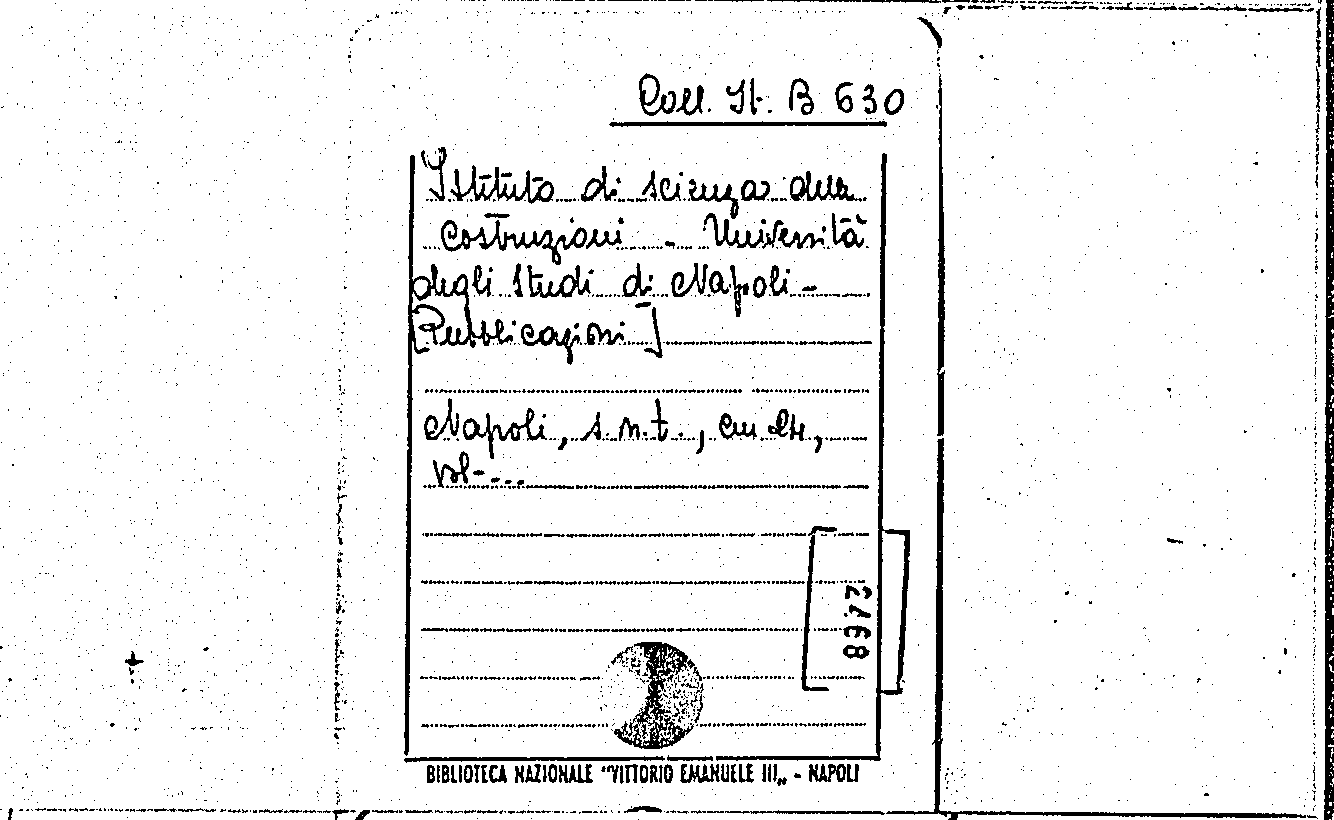 Coll. It. B 630
Istituto di scienza delle
costruzioni - Università
degli Studi di Napoli -
[Pubblicazioni]
Napoli, s.n.t., cm 24,
vol-...
BIBLIOTECA NAZIONALE "VITTORIO EMANUELE III„ - NAPOLI